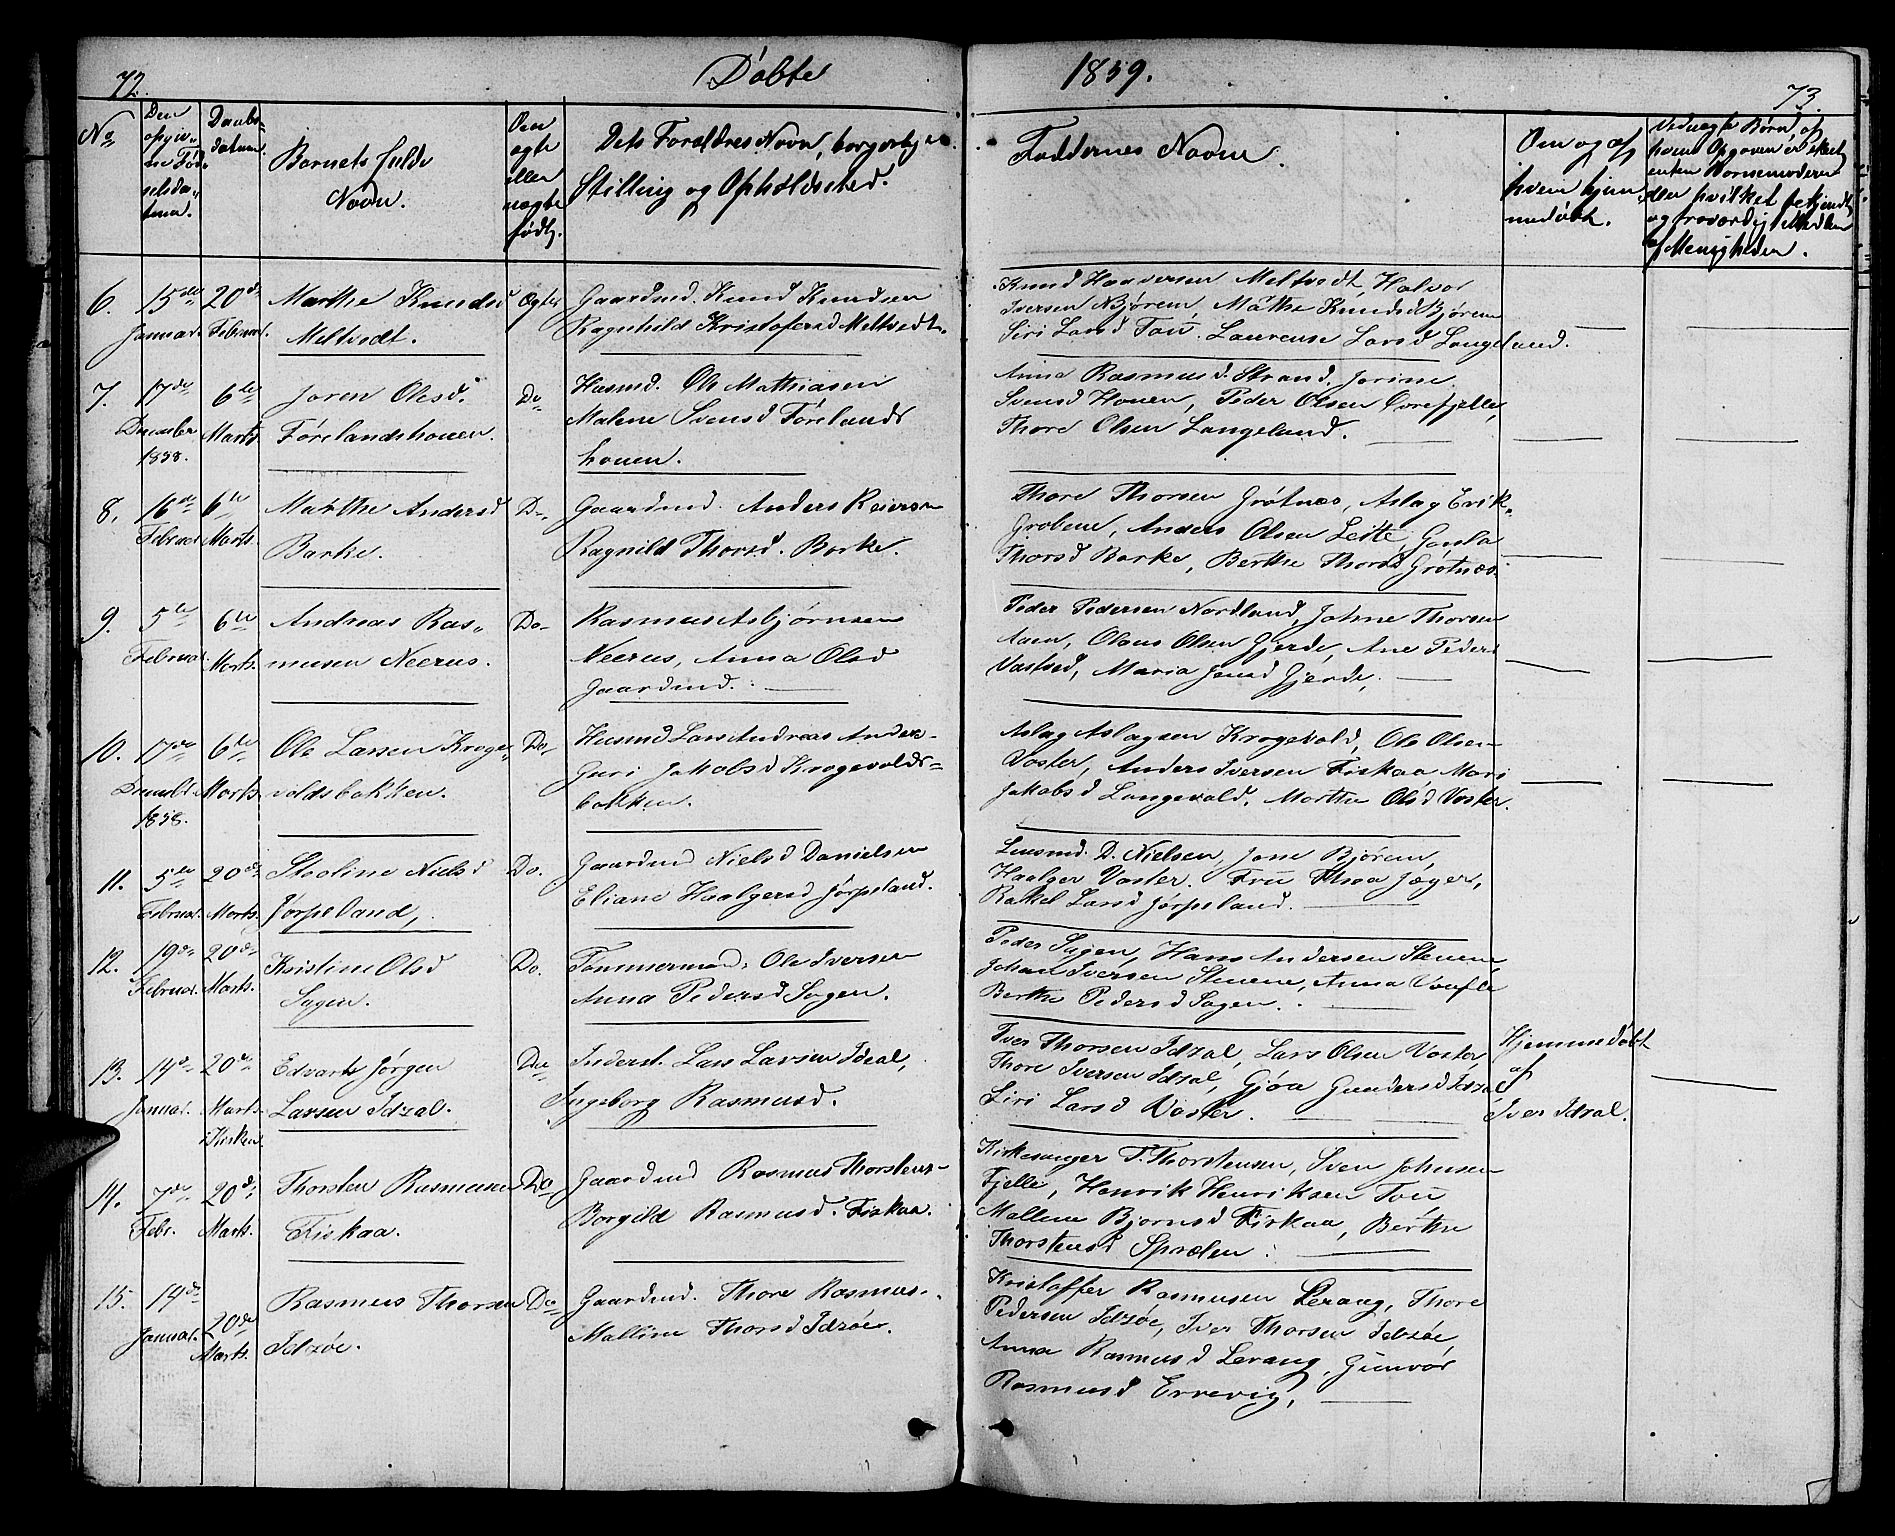 72.
Döbte
1859.
73.
No
Den opgivne Fødselsdatum.
Daabsdatum.
Barnets fulde
Navn.
Om ægte eller uægte født.
Dets Forældres Navn, borgerlige
Stilling og Opholdssted.
Faddernes Navne.
Om og af
hvem hjem
medöbt.
Veduægte Børn, af
hvem Opgaven er skeet
enten Barnemoderen
eller hvilket bekjendt
og troværdig Medlem
af Menigheden.
6. 15de Januar. 20de Februar. Marthe Knudsd
Meltvedt.
Ægte
Gaardmd. Knud Knudsen
Ragnhild Kristofersd Meltvedt.
Knud Haaversen Meltvedt, Halvor
Iversen Bjørem, Mathe Knudsd Bjørem
Siri Larsd Tou. Laurense Larsd Langeland.
7. 17de December 1858. 6te Marts. Joren Olesd.
Førelandshouen.
Do
Husmd. Ole Mathiasen
Malene Svensd Førelands
houen.
Anna Rasmusd. Strand, Jorine
Svensd Houen, Peder Olsen Overfjelle,
Thore Olsen Langeland.
8. 16de Februar. 6te Marts. Marthe Andersd
Barke.
Do
Gaardmd. Anders Reiersen
Ragnild Thorsd. Barke.
Thore Thorsen Grøtnæs, Aslag Erik
Grobene, Anders Olsen Leite Gunla
Thorsd Barke, Berthe Thorsd Grøtnæs.
9. 5te Februar. 6te Marts. Andreas Ras
musen Neerus.
Do
Rasmus Asbjørnsen
Neerus, Anna Olsd
Gaardmd.
Peder Pedersen Nordland, Johne Thorsen
Aaen, Olaus Olsen Gjerde, Ane Peders
Vatsted, Maria Jensd Gjerde,
10. 17de Decembr 1858. 6te Marts. Ole Larsen Kroge
voldsbakken.
Do
Husmd Lars Andreas Ander
Guri Jakobsd Krogevolds
bakken.
Aslag Aslagsen Krogevold, Ole Olsen
Voster, Anders Iversen Fiskaa Mari
Jakobsd Langevold, Marthe Olsd Voster.
11. 5te Februar. 20de Marts. Staline Nielsd
Jørpeland,
Do.
Gaardmd Nielsd Danielsen
Eliane Haalgersd Jørpeland.
Lensmd. D. Nielsen, Jone Bjørem,
Haalger Voster. Fru Thoa Jæger,
Rakel Larsd Jørpeland.
12. 19de Februar. 20de Marts. Kristine Olsd
Sagen.
Do.
Tømmermand. Ole Iversen
Anna Pedersd Sagen.
Peder Sagen, Hans Andersen Stenene,
Johan Iversen Stenene, Anna
Berthe Pedersd Sagen.
13. 14de Januar. 20de Marts i Kirken Edvart Jørgen
Larsen Idzal.
Do
Inderst. Lars Larsen Idzal,
Ingeborg Rasmusd.
Iver Thorsen Idzal, Lars Olsen Voster,
Thore Iversen Idzal, Gjøa Gundersd Idzal,
Siri Larsd Voster.
Hjemmedöbt
af
Iver Idzal.
14. 7de Febr. 20de Marts. Thorsten Rasmusen
Fiskaa.
Do
Gaardmd Rasmus Thorstens
Borgild Rasmusd. Fiskaa.
Kirkesanger T. Thorstensen, Sven Johnsen
Fjelle, Henrik Henriksen Tou
Mallene Bjornsd Fiskaa, Berthe
Thorstensd Sprælen.
15. 14de Januar. 20de Marts. Rasmus Thorsen
Idzöe.
Do
Gaardmd. Thore Rasmus
Malline Thorsd Idzøe.
Kristoffer Rasmusen Lerang, Thore
Pedersen Idzöe, Iver Thorsen Idzöe
Anna Rasmusd Lerang, Gunvor
Rasmusd Errevig,